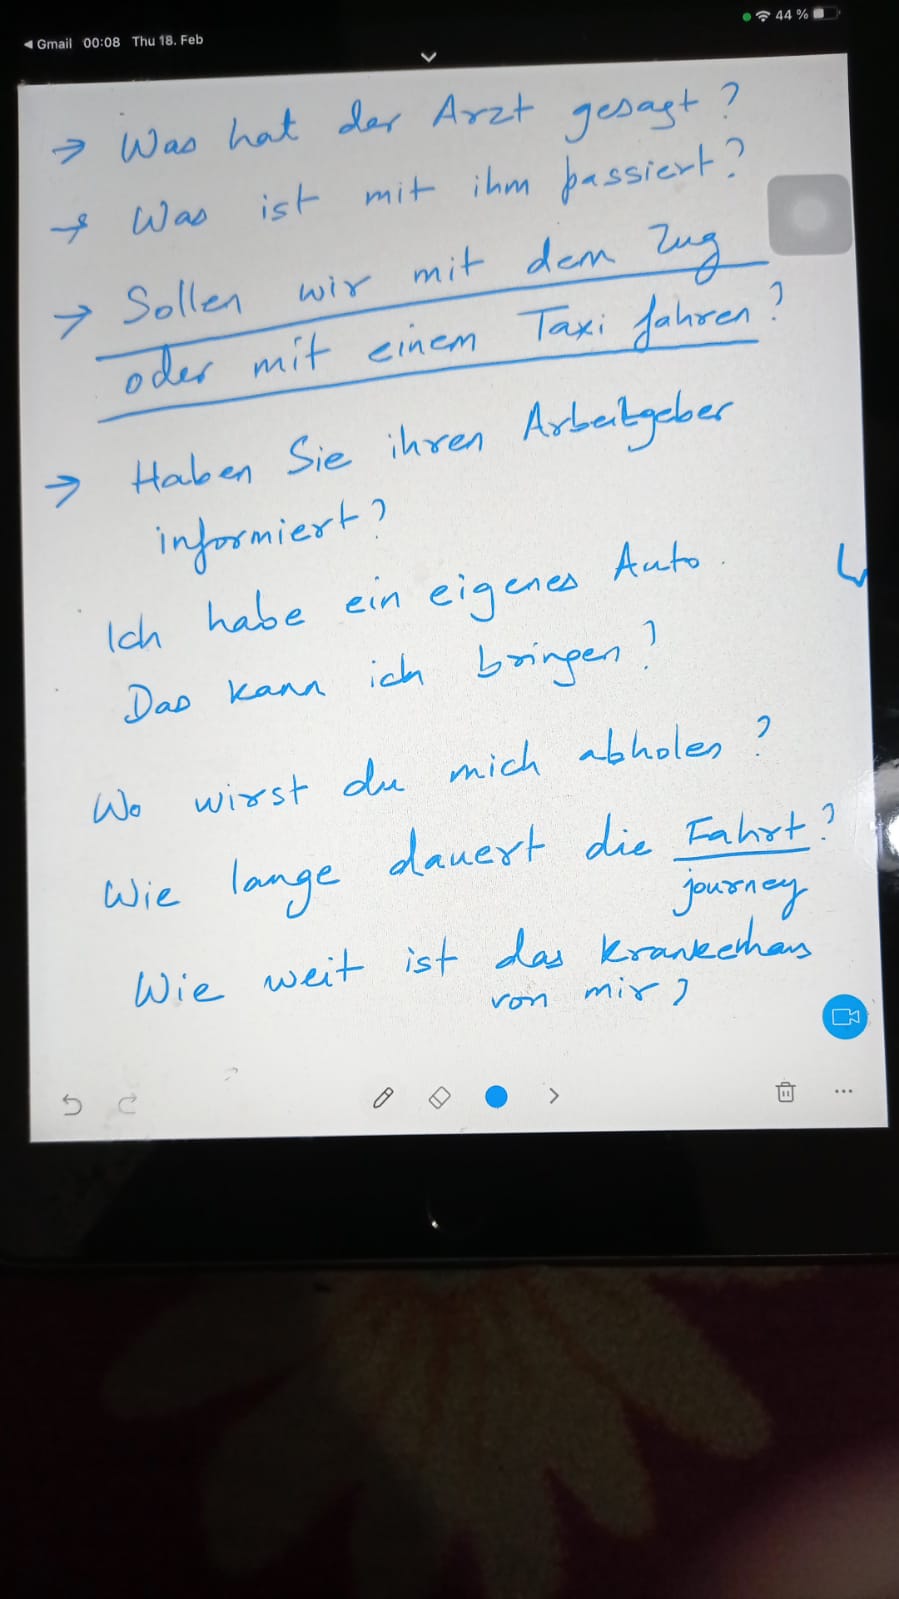 44 %
◀ Gmail 00:08 Thu 18. Feb
→ Was hat der Arzt gesagt?
→ Was ist mit ihm passiert?
→ Sollen wir mit dem Zug
oder mit einem Taxi fahren?
→ Haben Sie ihren Arbeitgeber
informiert?
Ich habe ein eigenes Auto.
Das kann ich bringen?
Wo wirst du mich abholen?
Wie lange dauert die Fahrt?
journey
Wie weit ist das Krankenhaus
von mir?